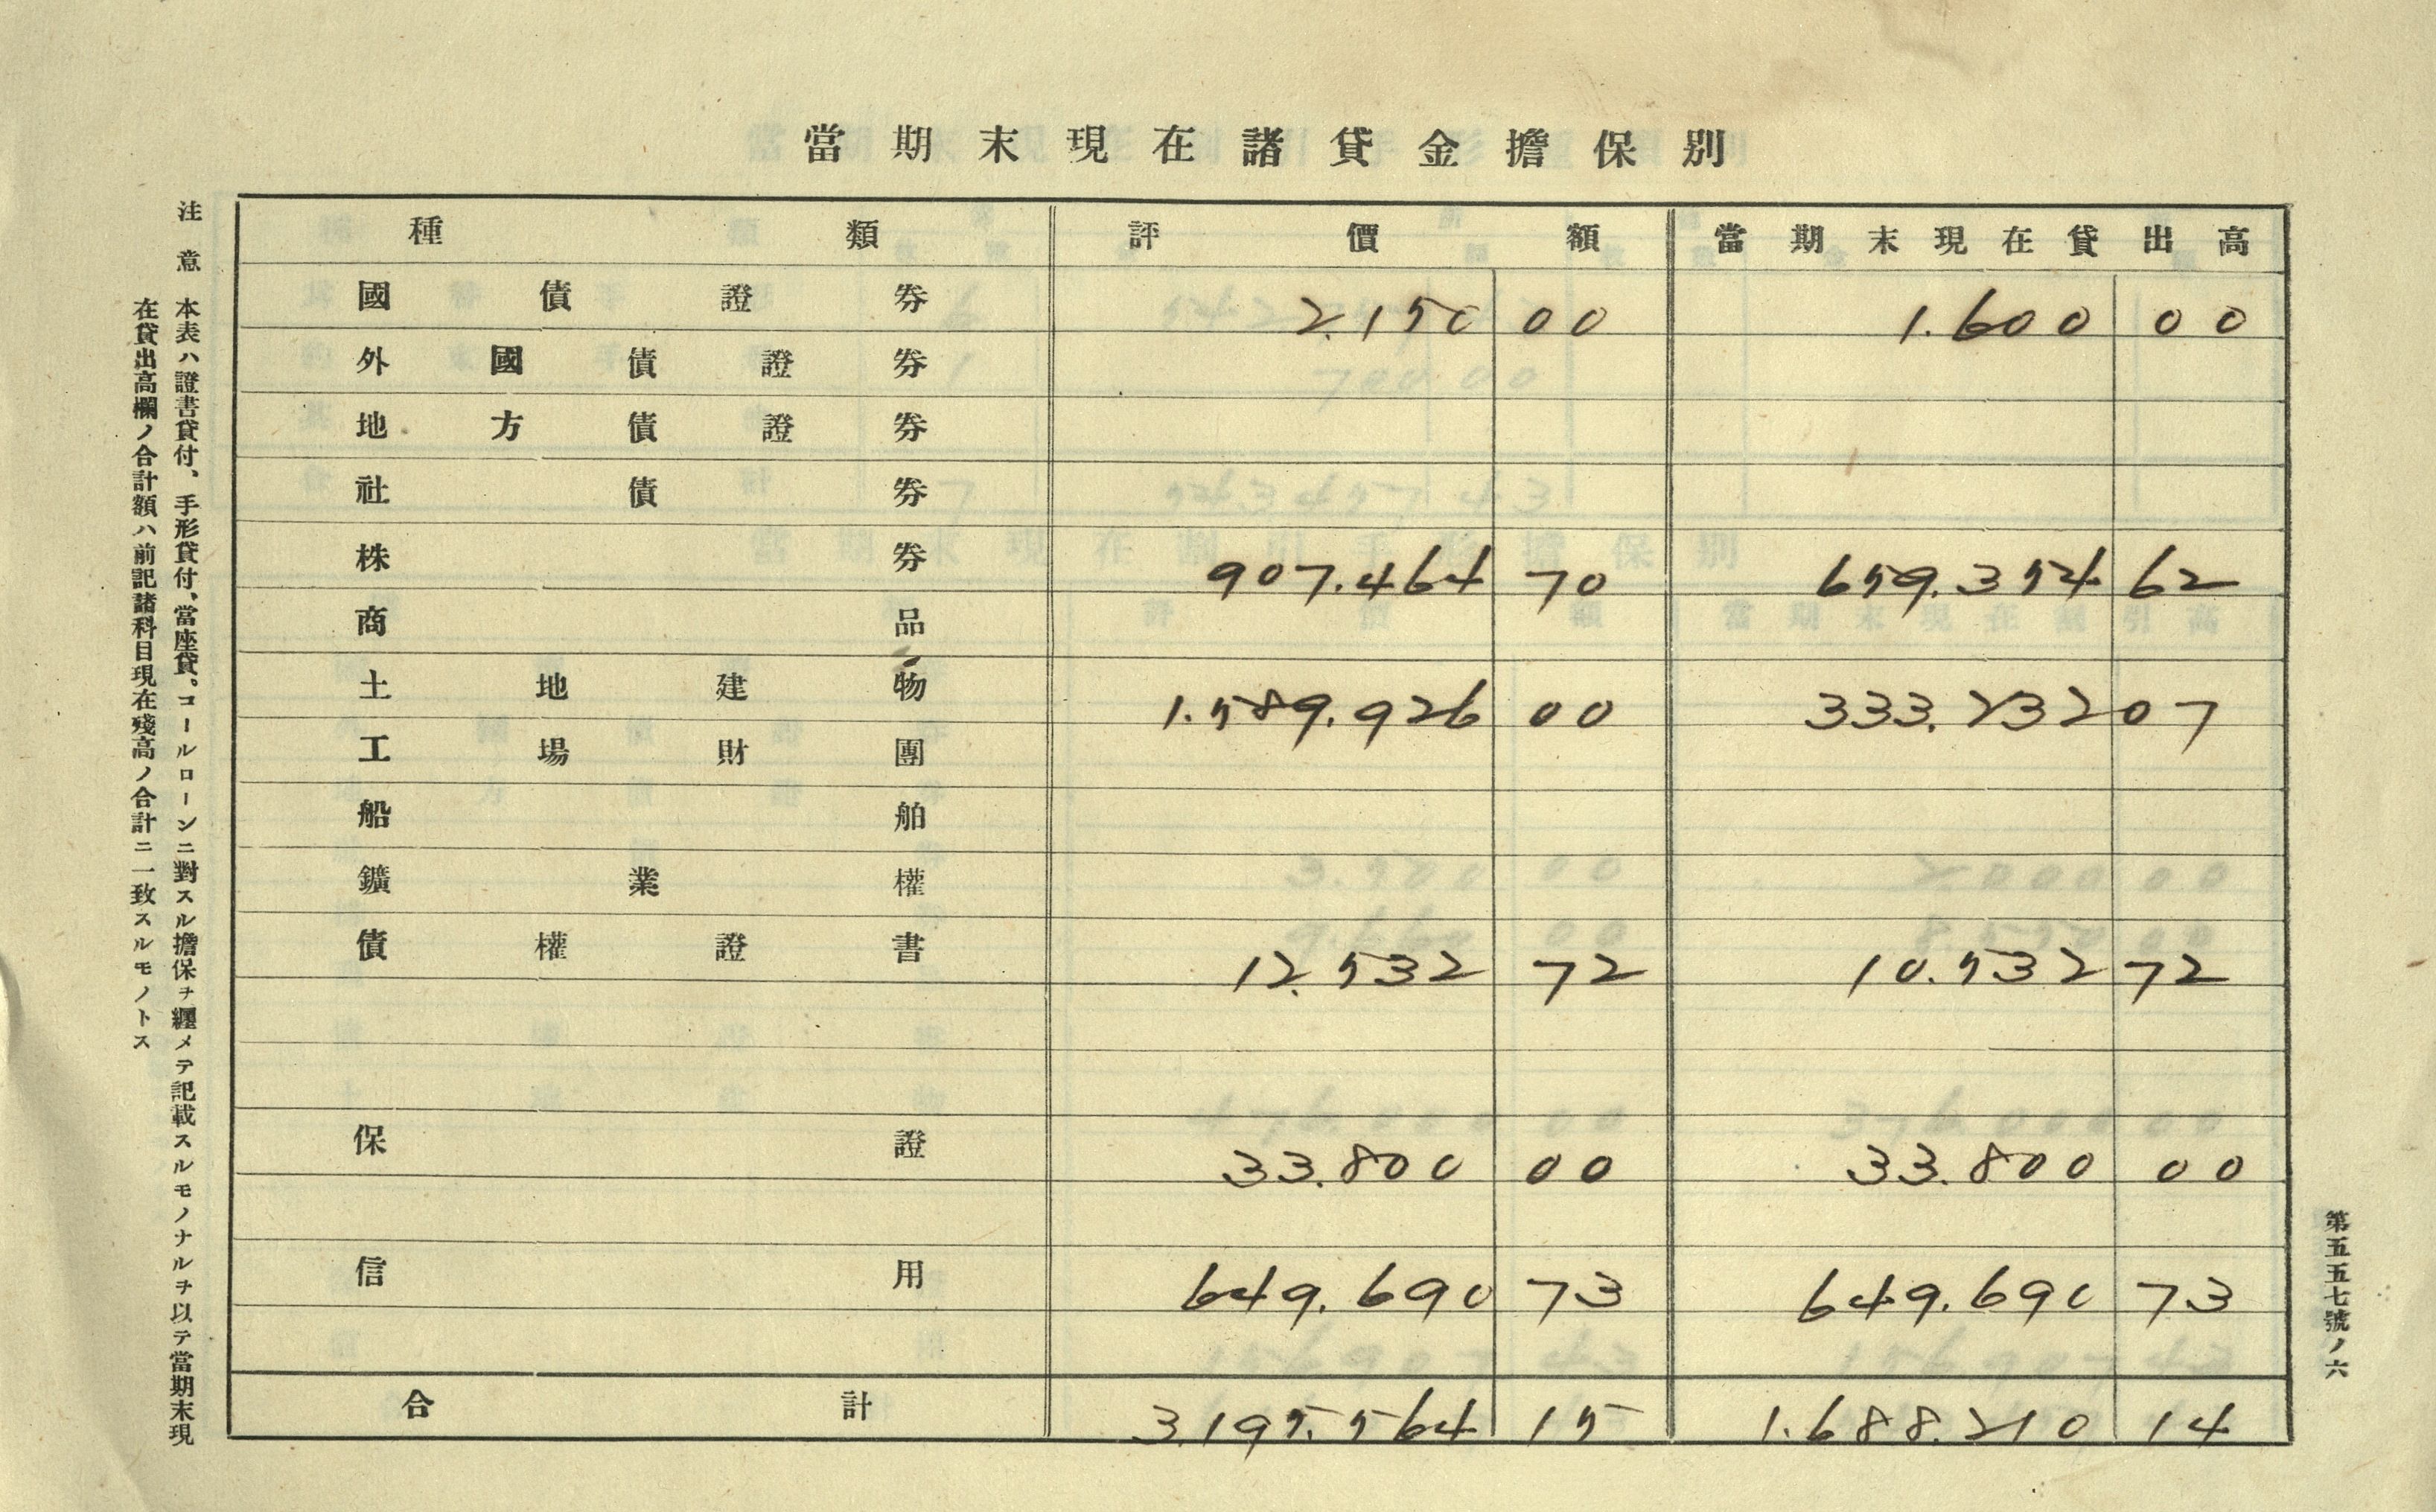 當期末現在諸貸金擔保別
種類 評價額 當期末現在貸出高
國債證券 2.150 00 1.600 00
外國債證券
地方債證券
社債券
株券 907.464 70 659.354 62
商品
土地建物 1.589.926 00 333.232 07
工場財團
船舶
鑛業權
債權證書 12.532 72 10.532 72
保證 33.800 00 33.800 00
信用 649.690 73 649.690 73
合計 3.195.564 15 1.688.210 14
注意 本表ハ證書貸付、手形貸付、當座貸。コールローンニ對スル擔保ヲ纒メテ記載スルモノナルヲ以テ當期末現
在貸出高欄ノ合計額ハ前記諸科目現在殘高ノ合計ニ一致スルモノトス
第五五七號ノ六